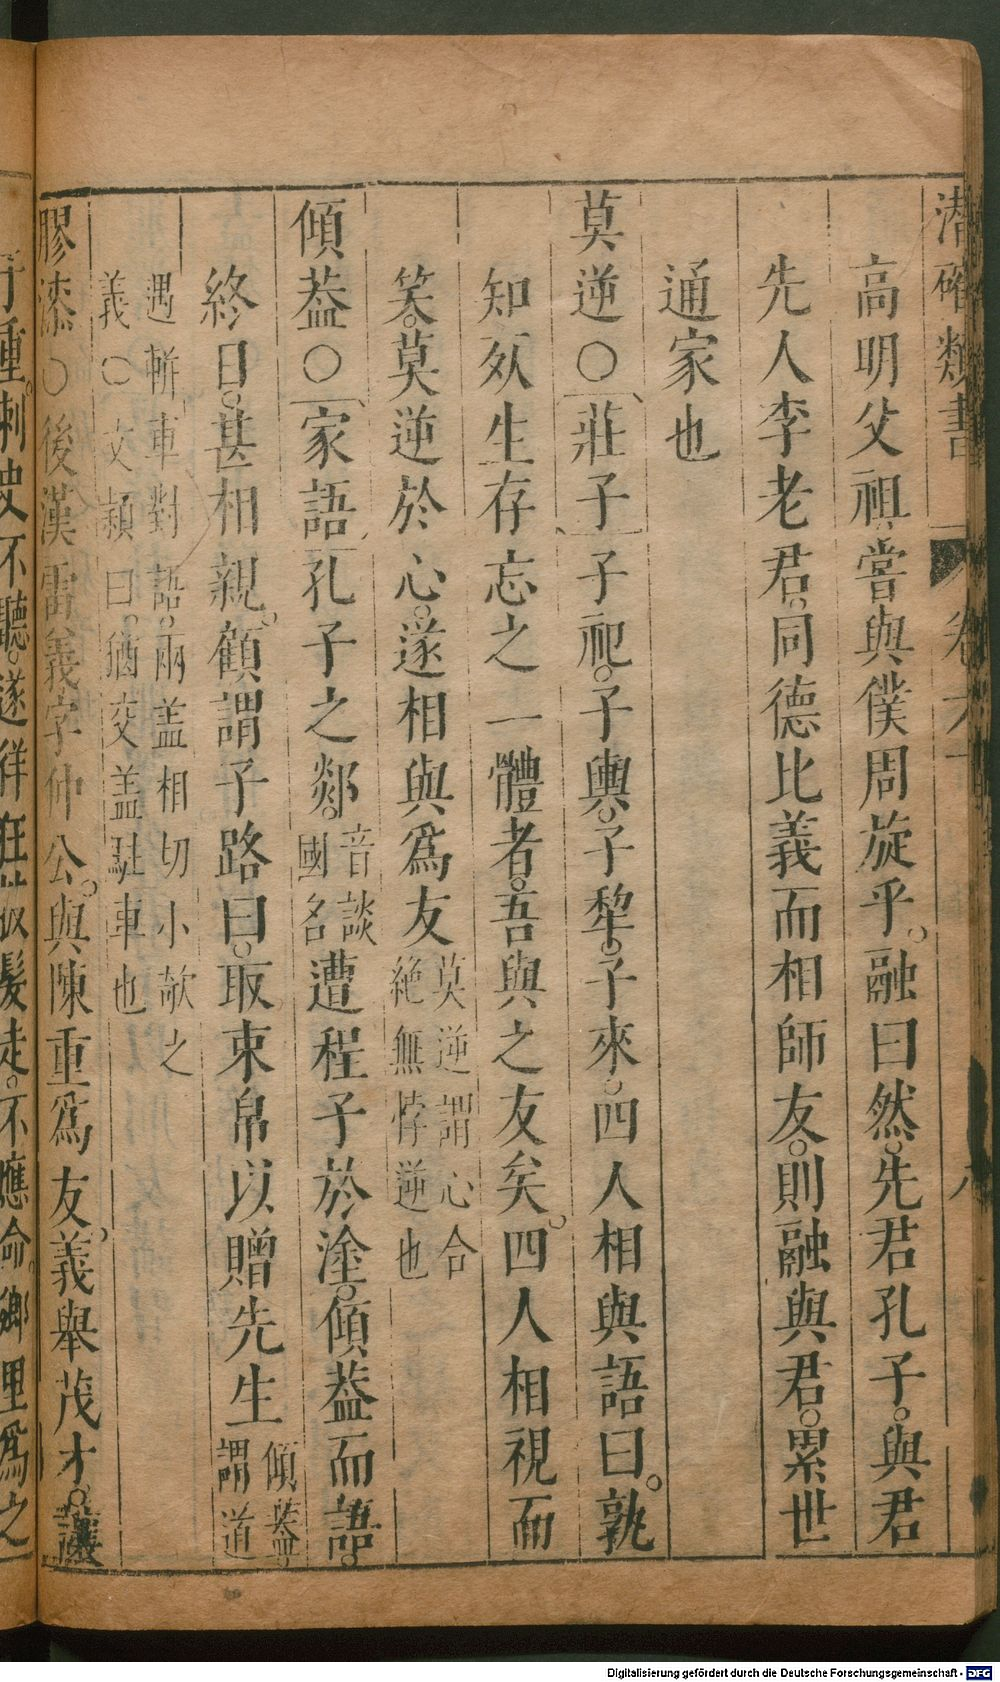 潜確類書 卷六十 八
高明父祖嘗與僕周旋乎。融曰然。先君孔子。與君
先人李老君。同德比義而相師友。則融與君。累世
通家也
莫逆○莊子子祀。子輿。子犂。子來。四人相與語曰。孰
知死生存忘之一體者。吾與之友矣。四人相視而
笑。莫逆於心。遂相與爲友莫逆謂心合
絶無悖逆也
傾葢○家語孔子之郯。音談
國名遭程子於塗。傾葢而語。
終日。甚相親。顧謂子路曰。取束帛以贈先生傾葢
謂道
遇軿車對語。兩盖相切小欹之
義○文穎曰。猶交盖駐車也
膠漆○後漢雷義字仲公。與陳重爲友。義舉茂才。讓
於重。刺史不聽。遂徉狂被髮走。不應命。鄉里爲之
Digitalisierung gefördert durch die Deutsche Forschungsgemeinschaft - DFG